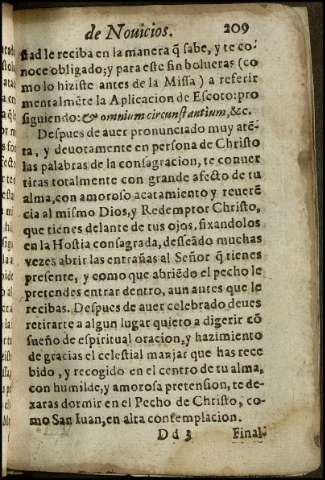 de Nouicios. 209
ſtad le reciba en la manera q̃ ſabe, y te co-
noce obligado; y para eſte fin bolueras (co
mo lo hiziſte antes de la Miſſa) a referir
mentalmẽte la Aplicacion de Eſcoto: pro
ſiguiendo: & omnium circunſtantium, &c.
Deſpues de auer pronunciado muy atẽ-
ta, y deuotamente en perſona de Chriſto
las palabras de la conſagracion, te conuer
tiras totalmente con grande afecto de tu
alma, con amoroſo acatamiento y reuerẽ
cia al miſmo Dios, y Redemptor Chriſto,
que tienes delante de tus ojos, fixandolos
en la Hoſtia conſagrada, deſſeãdo muchas
vezes abrir las entrañas al Señor q̃ tienes
preſente, y como que abriẽdo el pecho le
pretendes entrar dentro, aun antes que le
recibas. Deſpues de auer celebrado deues
retirarte a algun lugar quieto a digerir cõ
ſueño de eſpiritual oracion, y hazimiento
de gracias el celeſtial manjar que has rece
bido, y recogido en el centro de tu alma,
con humilde, y amoroſa pretenſion, te de-
xaras dormir en el Pecho de Chriſto, co-
mo San Iuan, en alta contemplacion.
D d 3 Final-